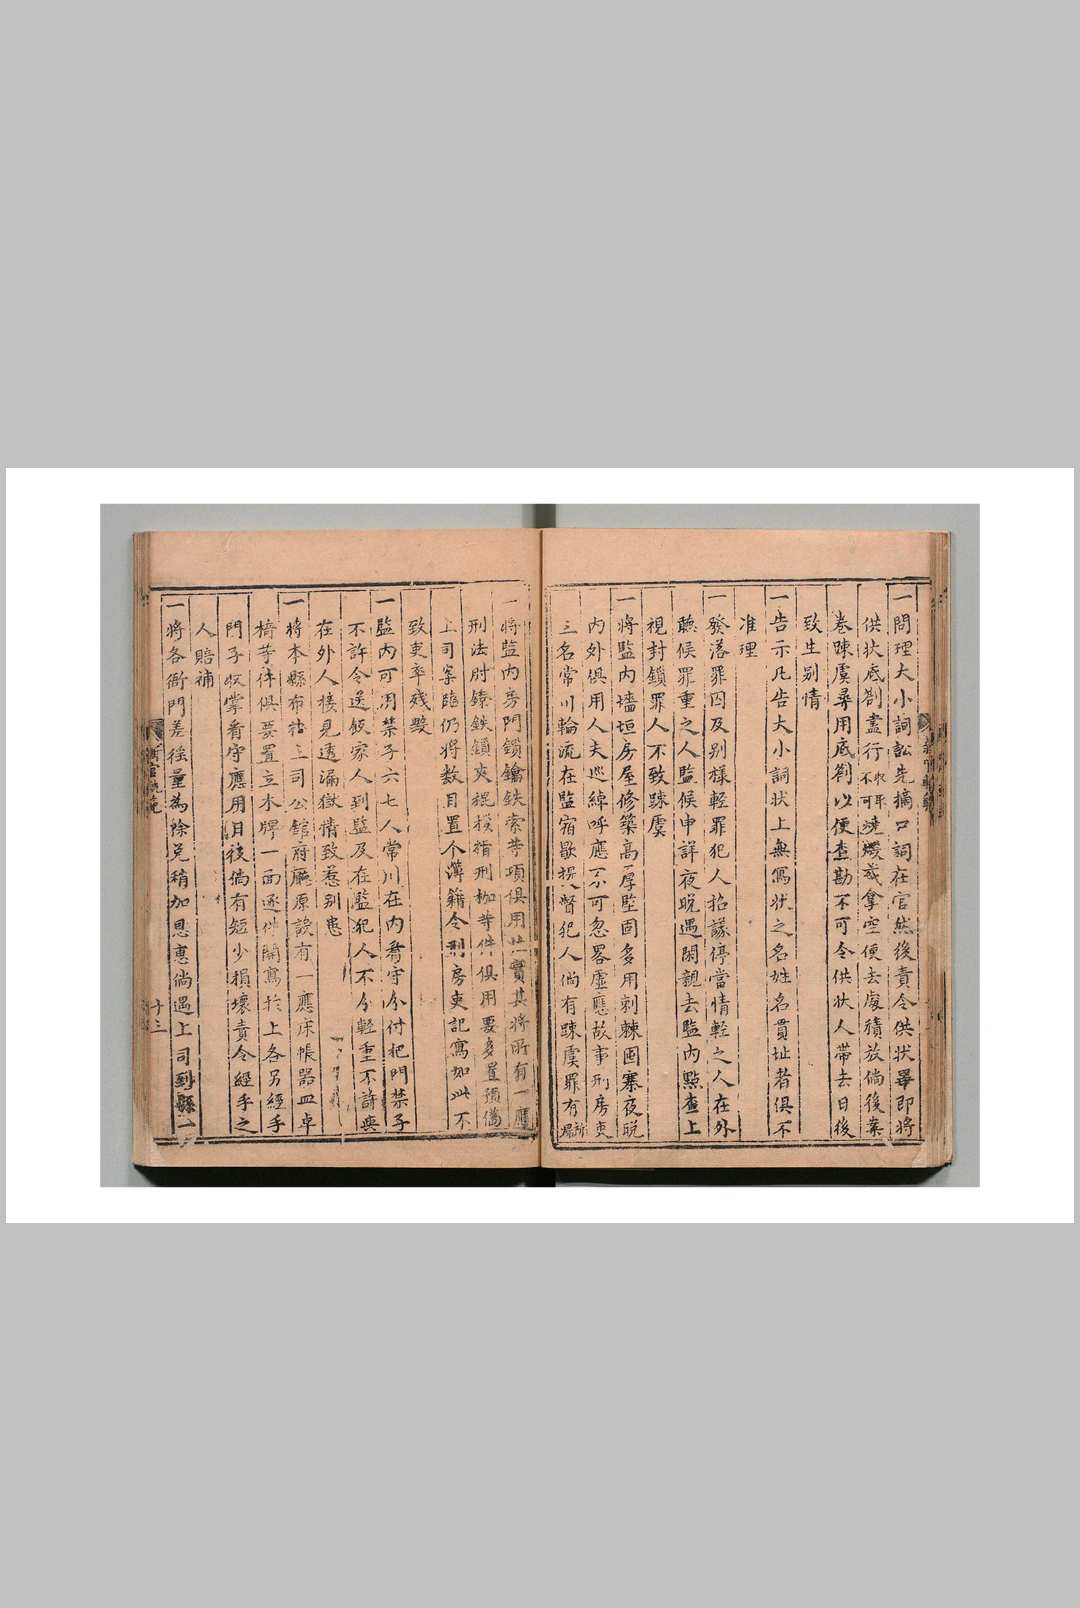 一問理大小詞訟先摘口詞在官然後責令供狀畢即將
供狀底劄盡行收來不可燒燬或拿空便去廢積放倘後案
卷踈虞尋用底劄以便查勘不可令供狀人帶去日後
致生别情
一告示凡告大小詞狀上無寫狀之名姓名貫址者俱不
准理
一發落罪囚及别樣輕罪犯人招議停當情輕之人在外
聽候罪重之人監候申詳夜晚遇閑親去監內點查上
視封鎖罪人不致踈虞
一將監內墻垣房屋修築高厚堅固多用刺棘囤寨夜晚
內外俱用人夫巡綽呼應不可忽畧虛應故事刑房吏
三名常川輪流在監宿歇提督犯人倘有踈虞罪有所歸
一將監內房門鎖鑰鉄索等項俱用 實其將所有一應
刑法肘鐐鉄鎖夾棍桚指刑枷等件俱用要多置預偹
上司案臨仍將数目置个薄籍令刑房吏記寫如此不
致吏卒残斃
一監內可用禁子六七人常川在內看守分付把門禁子
不許令送飯家人到監及在監犯人不分輕重不許與
在外人接見透漏獄情致惹别患
一將本縣布 上司公舘府廳原設有一應床帳器皿卓
椅等件俱要置立木牌一面逐件開寫於上各另經手
門子收掌看守應用日後倘有短少損壞責令經手之
人賠補
一將各衙門差徭量為除免稍加恩惠倘遇上司到縣一
新官軌範
十三